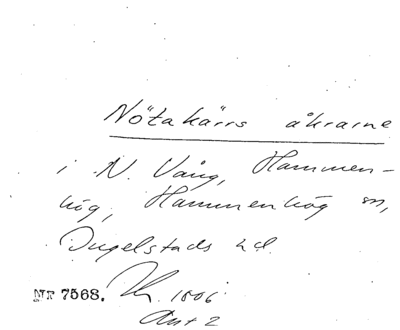 Nötakärrs åkrarne
i N. Vång, Hammen-
hög, Hammenhög sn,
Ingelstads hd.
Nr 7568. 1806
Akt 2